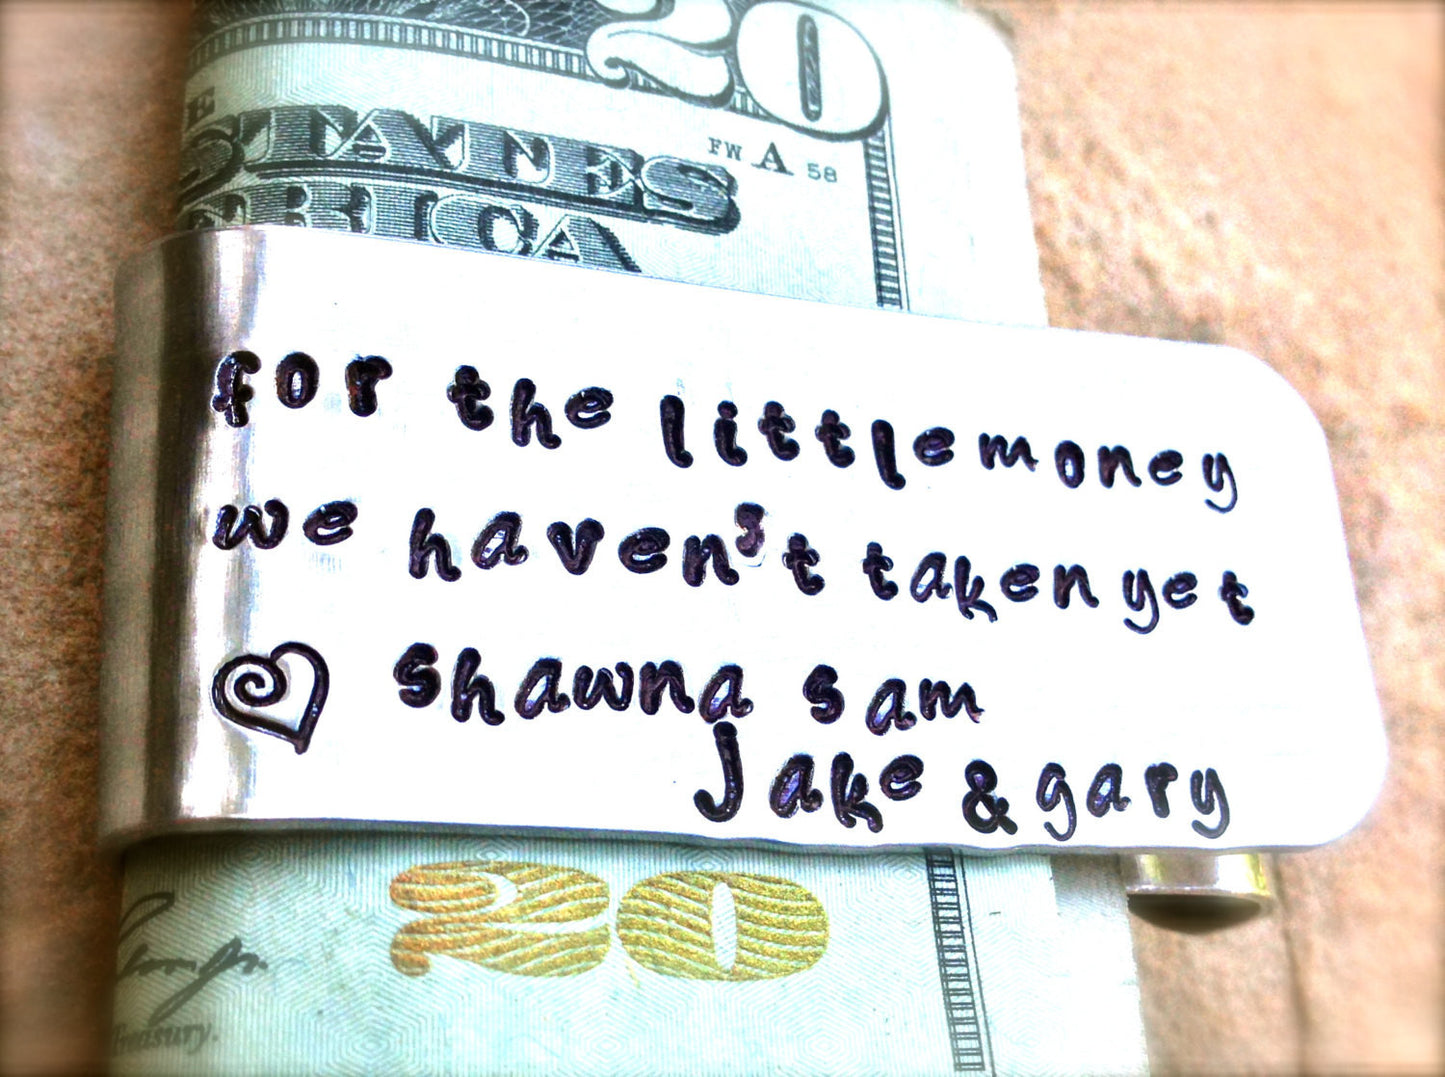 20
FW A 58
STATES
RICA
for the little money
we haven't taken yet
shawna sam
Jake & gary
20
Treasury.